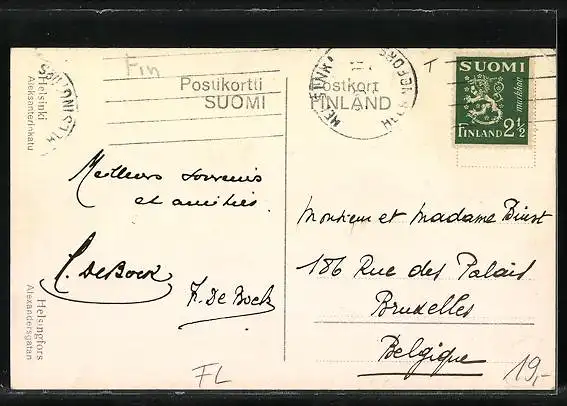 Fin
Postikortti
SUOMI
Postkort
FINLAND
SUOMI
markkaa
FINLAND 2½
HELSINKI
HELSINGFORS
Helsinki
Aleksanterinkatu
Helsingfors
Alexandersgatan
T
Meilleurs souvenirs
et amitiés.
C. De Bock
F. De Bock
Monsieur et Madame
186 Rue des Palais
Bruxelles
Belgique
FL
19,-